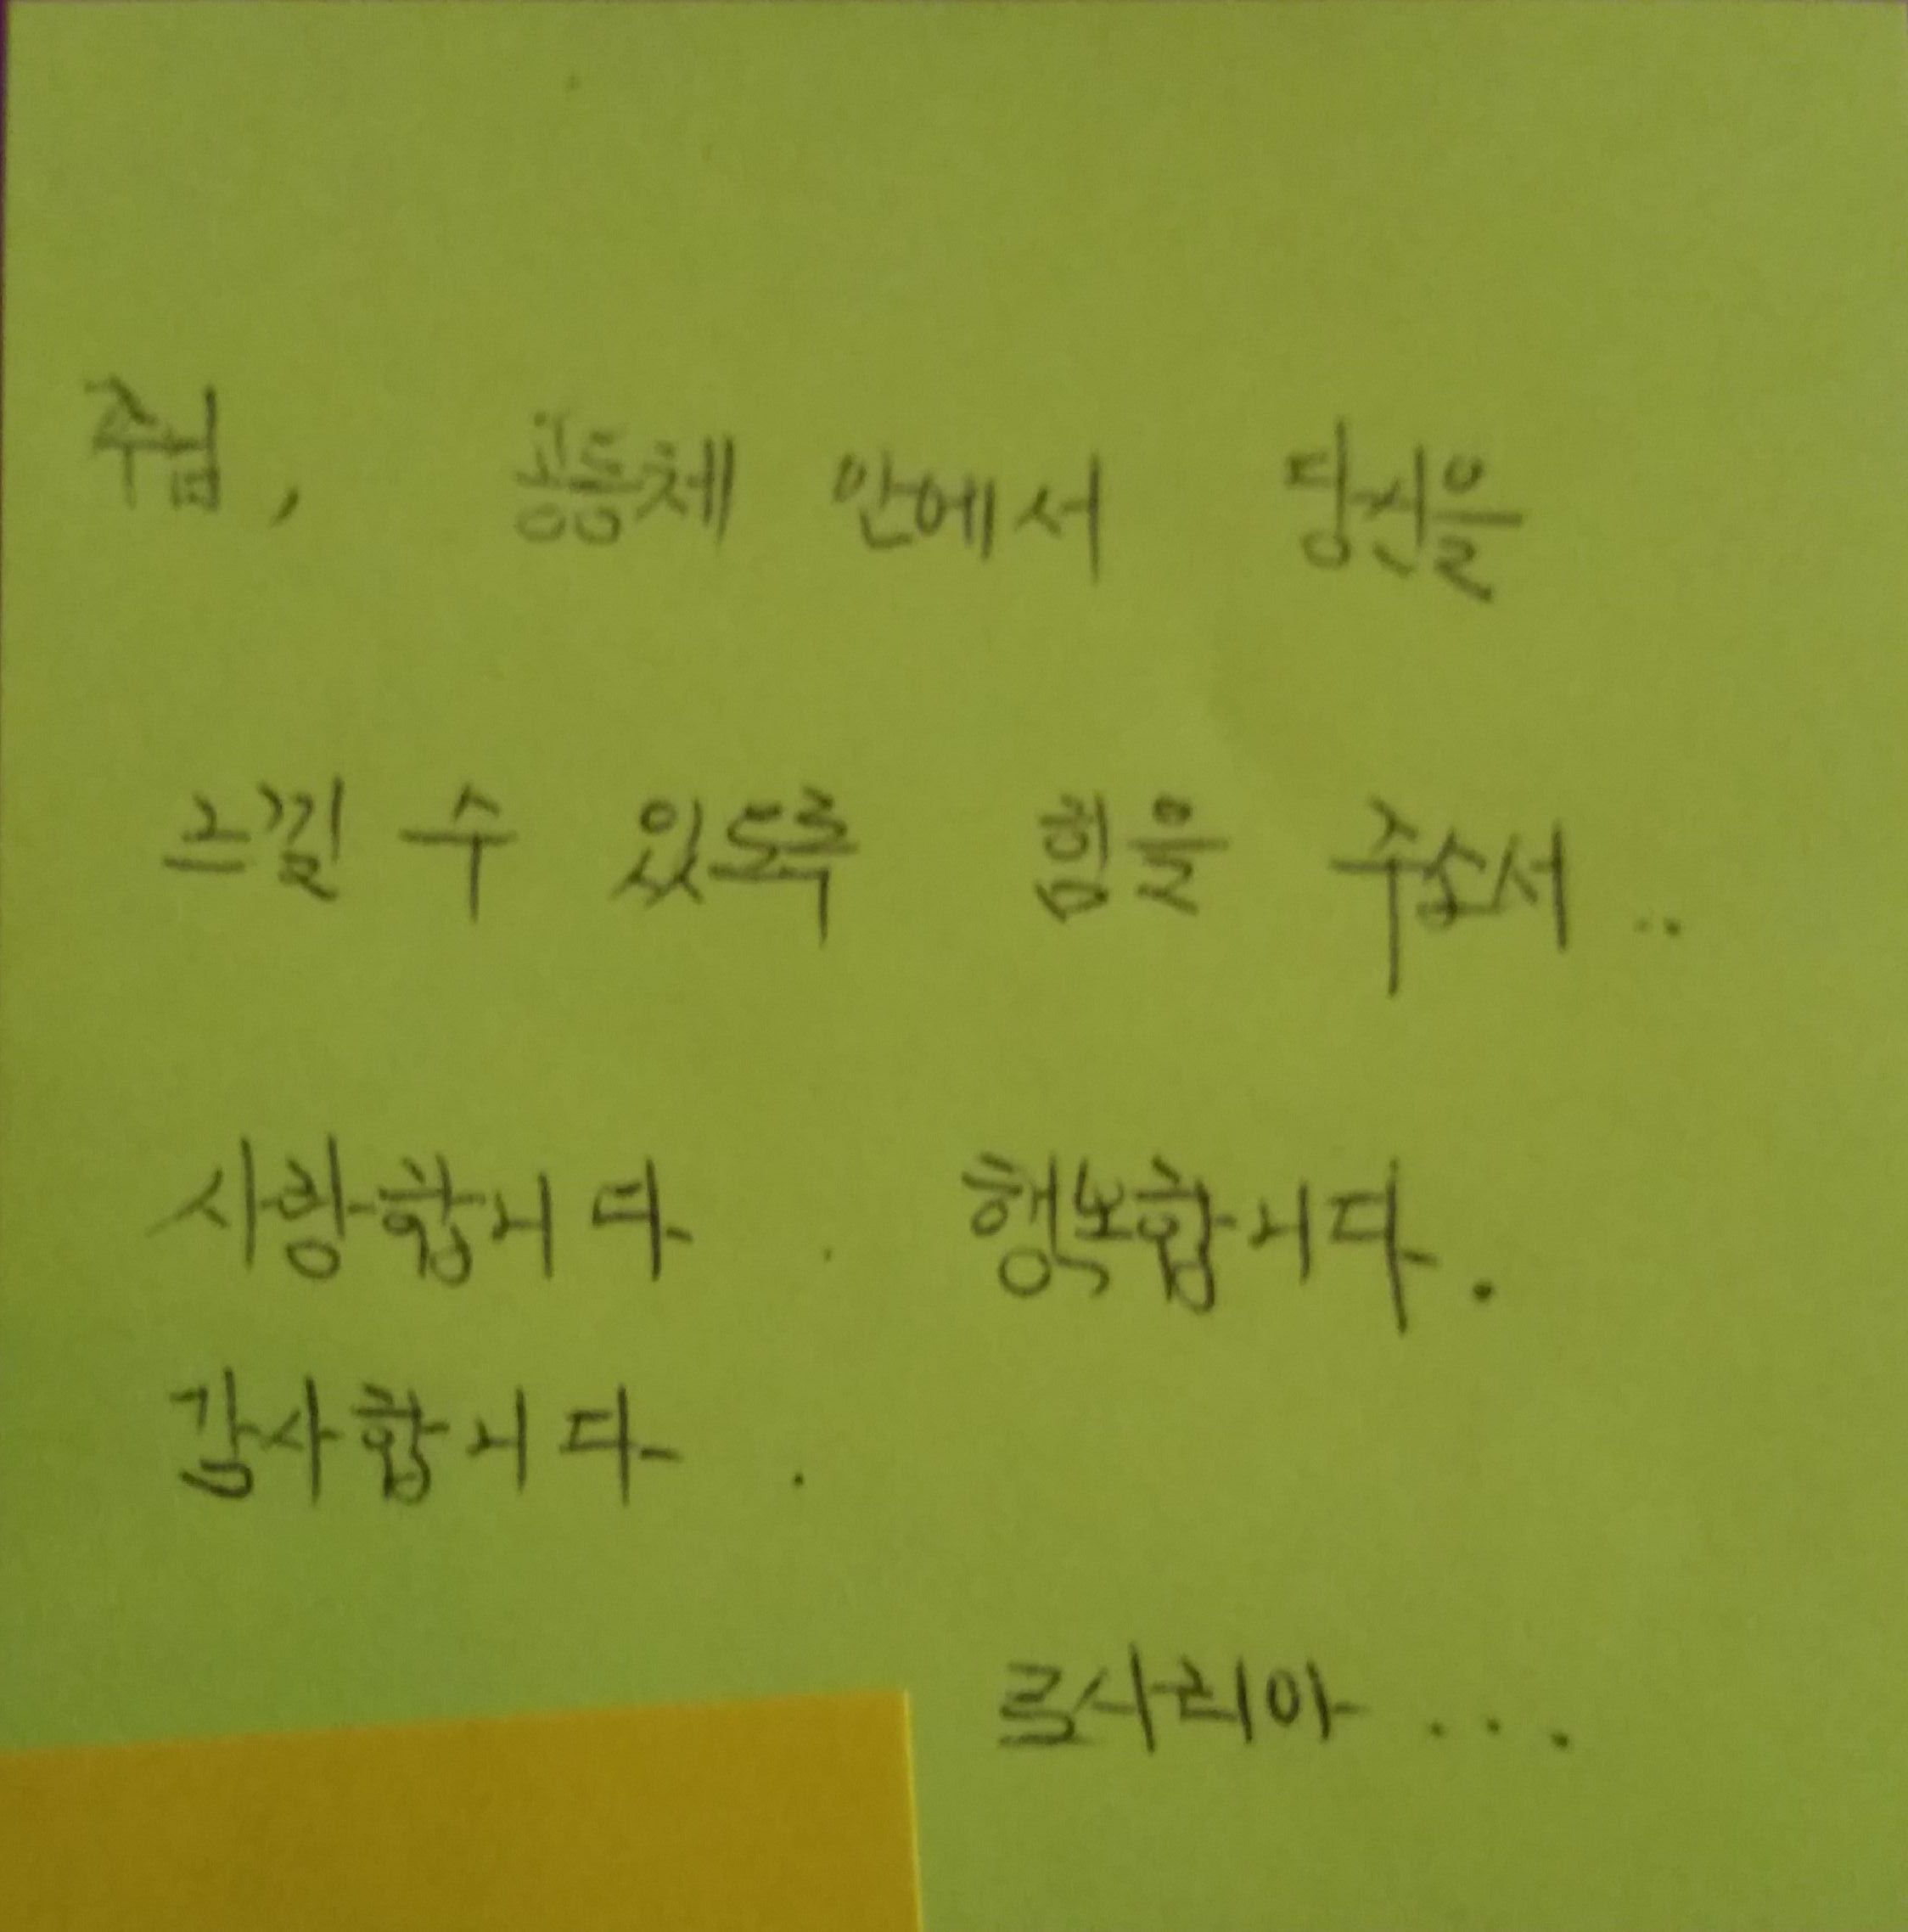 주님, 공동체 안에서 당신을
느낄 수 있도록 힘을 주소서..
사랑합니다. 행복합니다.
감사합니다.
로사리아...